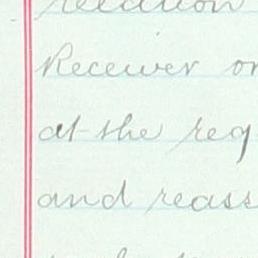 Receiver or
at the req
and reass